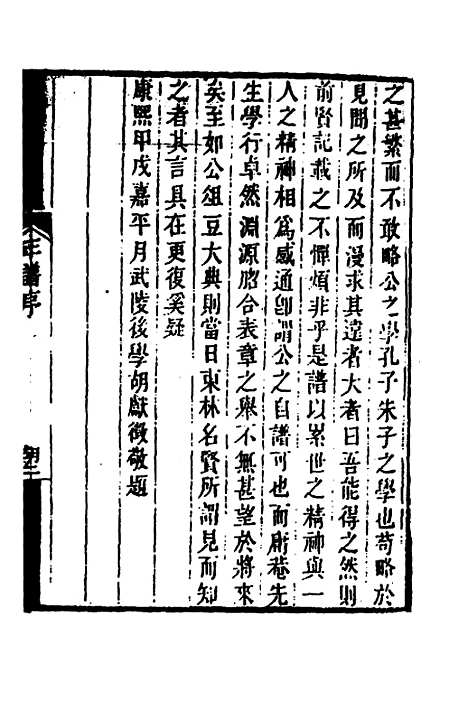 之甚繁而不敢略公之學孔子朱子之學也苟略於
見聞之所及而漫求其遠者大者曰吾能得之然則
前賢記載之不憚煩非乎是譜以累世之精神與一
人之精神相為感通卽謂公之自譜可也而用巷先
生學行卓然淵源脗合表章之舉不無甚望於將來
矣至如公俎豆大典則當日東林名賢所謂見而知
之者其言具在更復奚疑
康熙甲戌嘉平月武陵後學胡獻徵敬題
年譜序